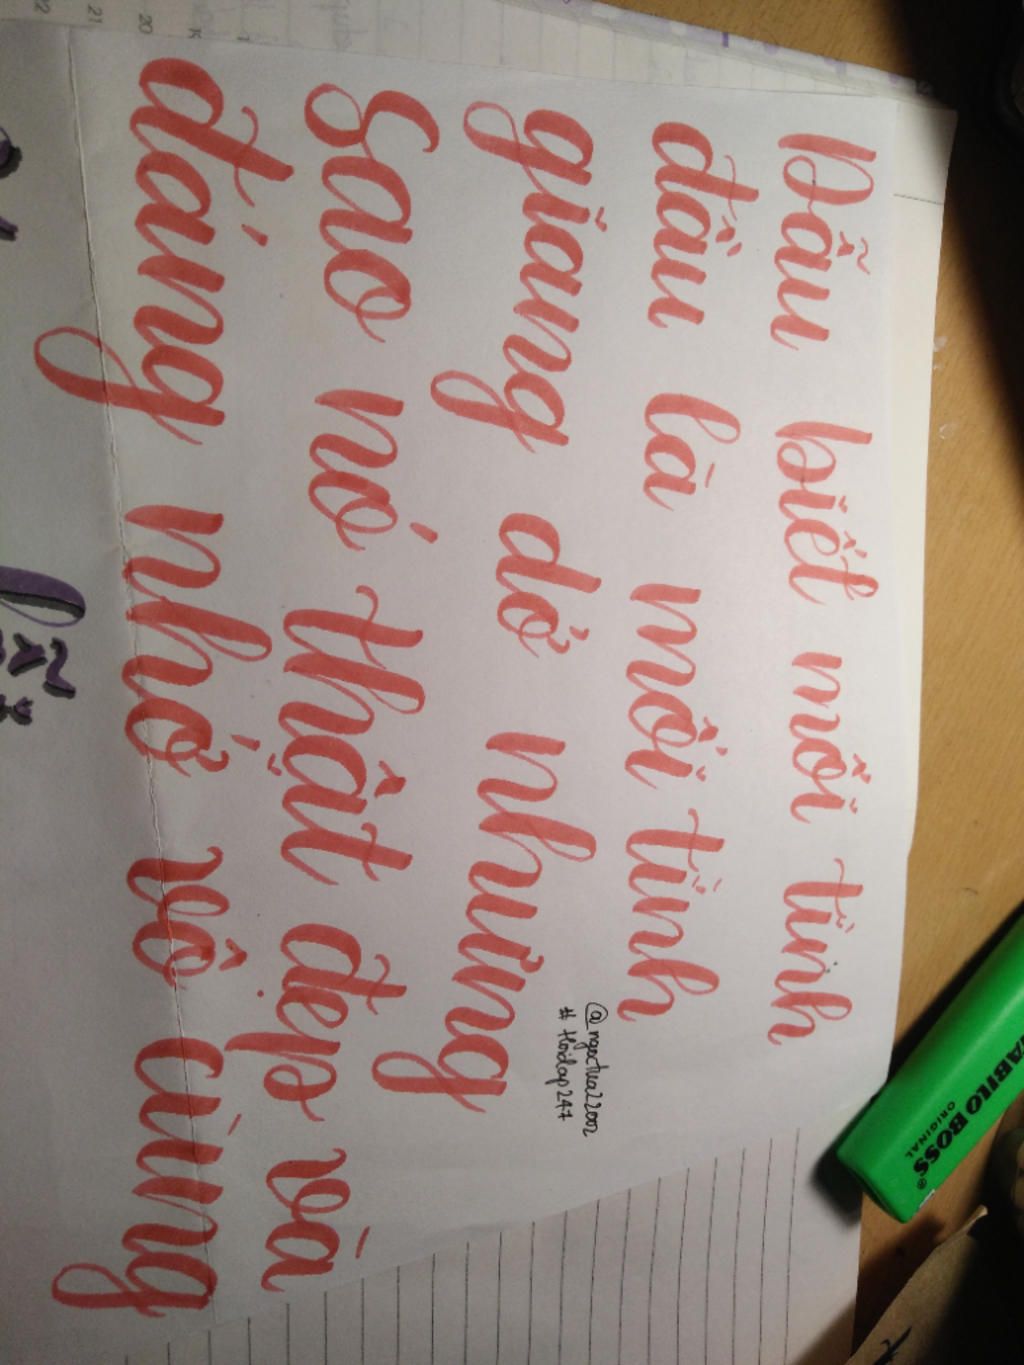 Dẫu biết mối tình
đầu là mối tình
giang dở nhưng
sao nó thật đẹp và
đáng nhớ vô cùng
#thoidap247
STABILO BOSS®
ORIGINAL
20
21
22